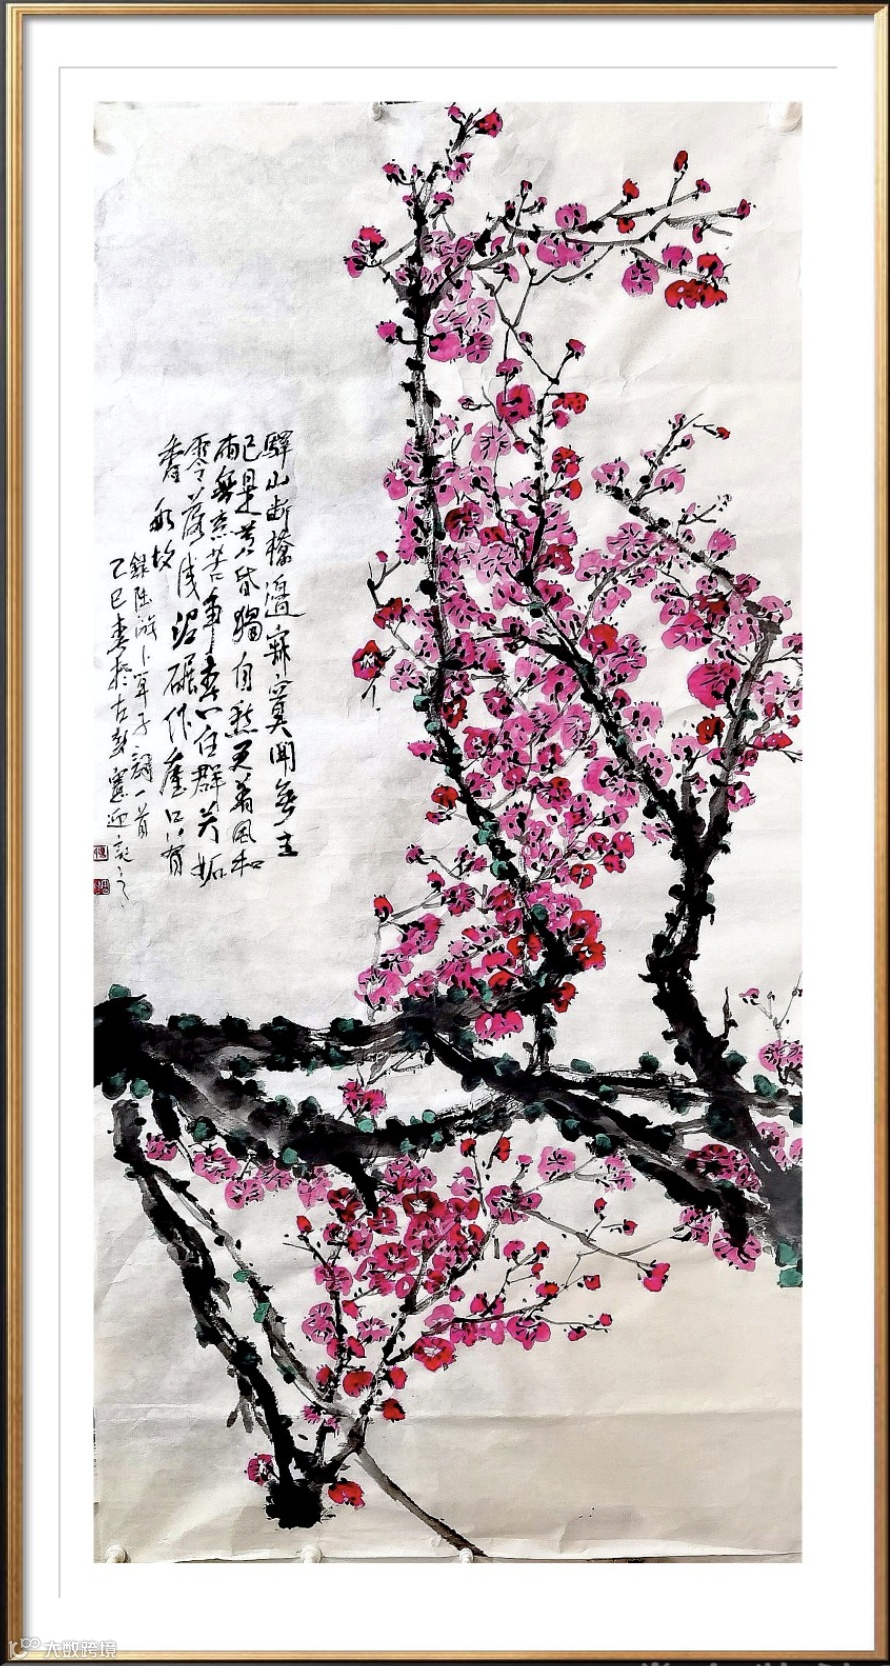 驛外断橋邊寂寞開無主
已是黄昏獨自愁更着風和
雨無意苦争春一任群芳妒
零落成泥碾作塵只有
香如故
錄陸游卜算子詞一首
乙巳春於古彭
大数跨境